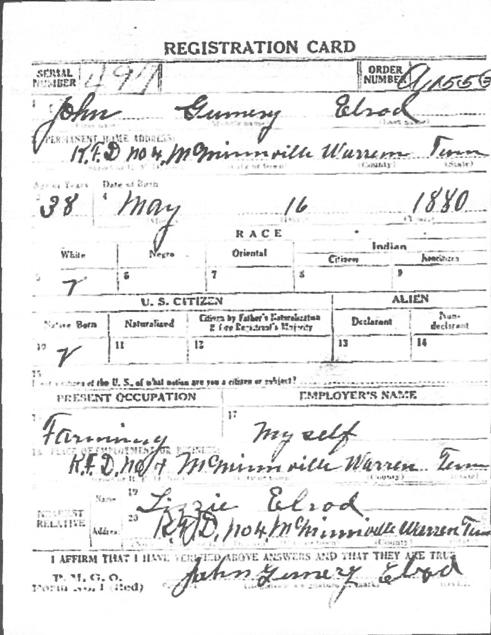 REGISTRATION CARD
SERIAL NUMBER 497 ORDER NUMBER
1 John Gumery Elrod
PERMANENT HOME ADDRESS:
R.F.D no 4 McMinnville Warren Tenn
(County) (State)
Age in Years Date of Birth
38 4 May 16 1880
RACE
White Negro Oriental Indian
Citizen Noncitizen
5 6 7 8 9
U. S. CITIZEN ALIEN
Native Born Naturalized Citizen by Father's Naturalization Before Registrant's Majority Declarant Non-declarant
10 11 12 13 14
15
If not a citizen of the U. S., of what nation are you a citizen or subject?
PRESENT OCCUPATION EMPLOYER'S NAME
17
Farming My self
PLACE OF EMPLOYMENT OR BUSINESS
R.F.D, no 4 McMinnville Warren Tenn
(County)
NEAREST RELATIVE
Name 19 Lizzie Elrod
Address 20 R.F.D, no 4 McMinnville Warren Tenn
(County)
I AFFIRM THAT I HAVE VERIFIED ABOVE ANSWERS AND THAT THEY ARE TRUE
P. M. G. O.
Form No. 1 (Red) John Gumery Elrod